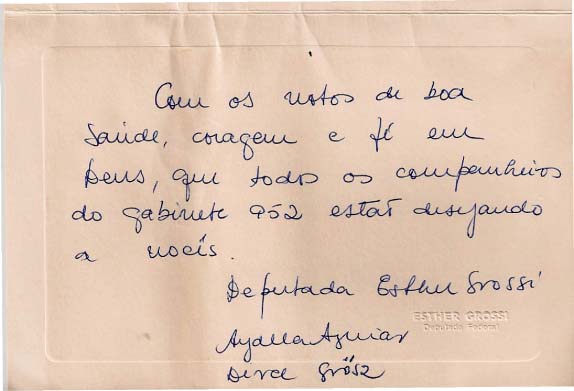 Com os votos de boa
saúde, coragem e fé em
Deus, que todos os companheiros
do gabinete 952 estão desejando
a vocês.
Deputada Esther Grossi
ESTHER GROSSI
Deputada Federal
Ayalla Aguiar
Dirce Grösz